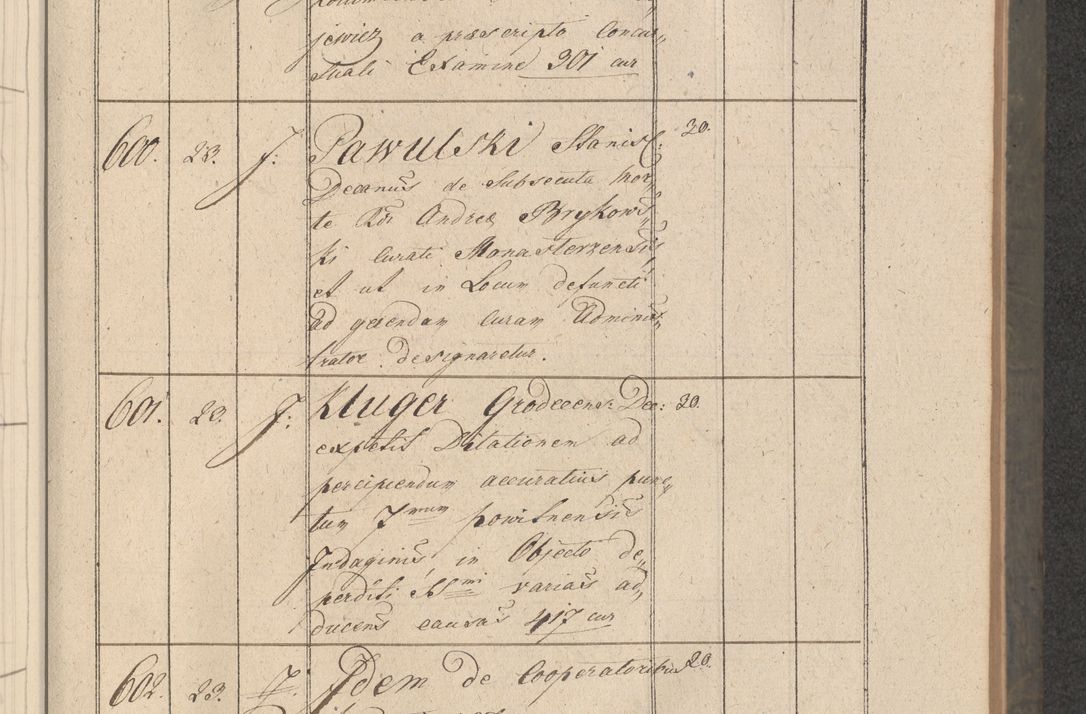 jewicz a præscripto Concur„
suali Examine 301 cur
600. 23. J: Pawulski Stanisl: 20.
Decanus de subsecuta Mor„
te Rdi Andreæ Brykows„
ki Curati Monasterzensis
et ut in Locum defuncti
ad gerendam Curam Adminis„
trator designaretur.
601. 23. J: Kluger Grodecens: Dec: 20.
expetit Dilationem ad
percipiendum accuratius punc„
tum 7mum powitnensis
Indaginis, in Objecto de„
perditi SSmi varias ad„
ducens causas 417 cur
602. 23. J: Idem de Cooperatoribus 20.